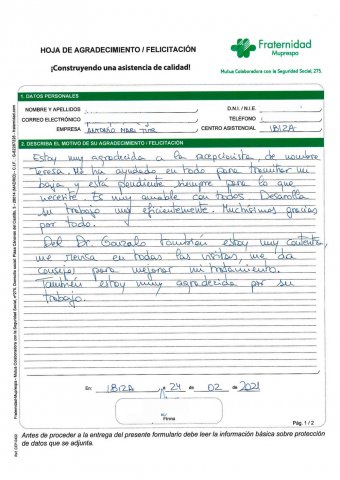 HOJA DE AGRADECIMIENTO / FELICITACIÓN
¡Construyendo una asistencia de calidad!
Fraternidad
Muprespa
Mutua Colaboradora con la Seguridad Social, 275.
1. DATOS PERSONALES
NOMBRE Y APELLIDOS
D.N.I. / N.I.E.
CORREO ELECTRÓNICO
TELÉFONO
EMPRESA ANTONIO MARI
CENTRO ASISTENCIAL IBIZA
2. DESCRIBA EL MOTIVO DE SU AGRADECIMIENTO / FELICITACIÓN
Estoy muy agradecida a la recepcionista, de nombre
Teresa. Me ha ayudado en todo para tramitar mi
baja y esta pendiente siempre para lo que
necesite. Es muy amable con todos. Desarolla
su trabajo muy eficientemente. Muchísimas gracias
por todo.
Del Dr Gonzalo también estoy muy contenta,
me revisa en todas las visitas, me da
consejos para mejorar mi tratamiento.
También estoy muy agradecida por su
trabajo.
En: IBIZA, a 24 de 02 de 2021
Firma
Pág. 1 / 2
Antes de proceder a la entrega del presente formulario debe leer la información básica sobre protección
de datos que se adjunta.